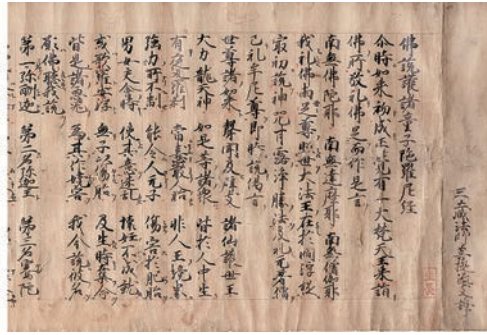 三藏法師菩提流支譯
佛說護諸童子陀羅尼經
尒時如来初成正覺有一大梵天王来詣
佛所敬礼佛足而作是言
南無佛陀耶 南無達摩耶 南無僧伽耶
我礼佛足尊 照世大法王 在於閻浮提
最初說神咒 甘露淨勝法 及礼无著僧
已礼牟尼尊 即時說偈言
世尊諸如来 聲聞及辟支 諸仙護世王
大力龍天神 如是等諸衆 皆於人中生
有夜叉羅刹 常喜噉人胎 非人王境界
強力所不制 能令人无子 傷害於胞胎
男女交會時 使其意迷亂 懷妊不成就
或歌羅安浮 無子以傷胎 及生時奪命
皆是諸惡鬼 為其作嬈害 我今說彼名
願佛聽我說
第一弥酬迦 第二名弥迦王 第三名騫陀